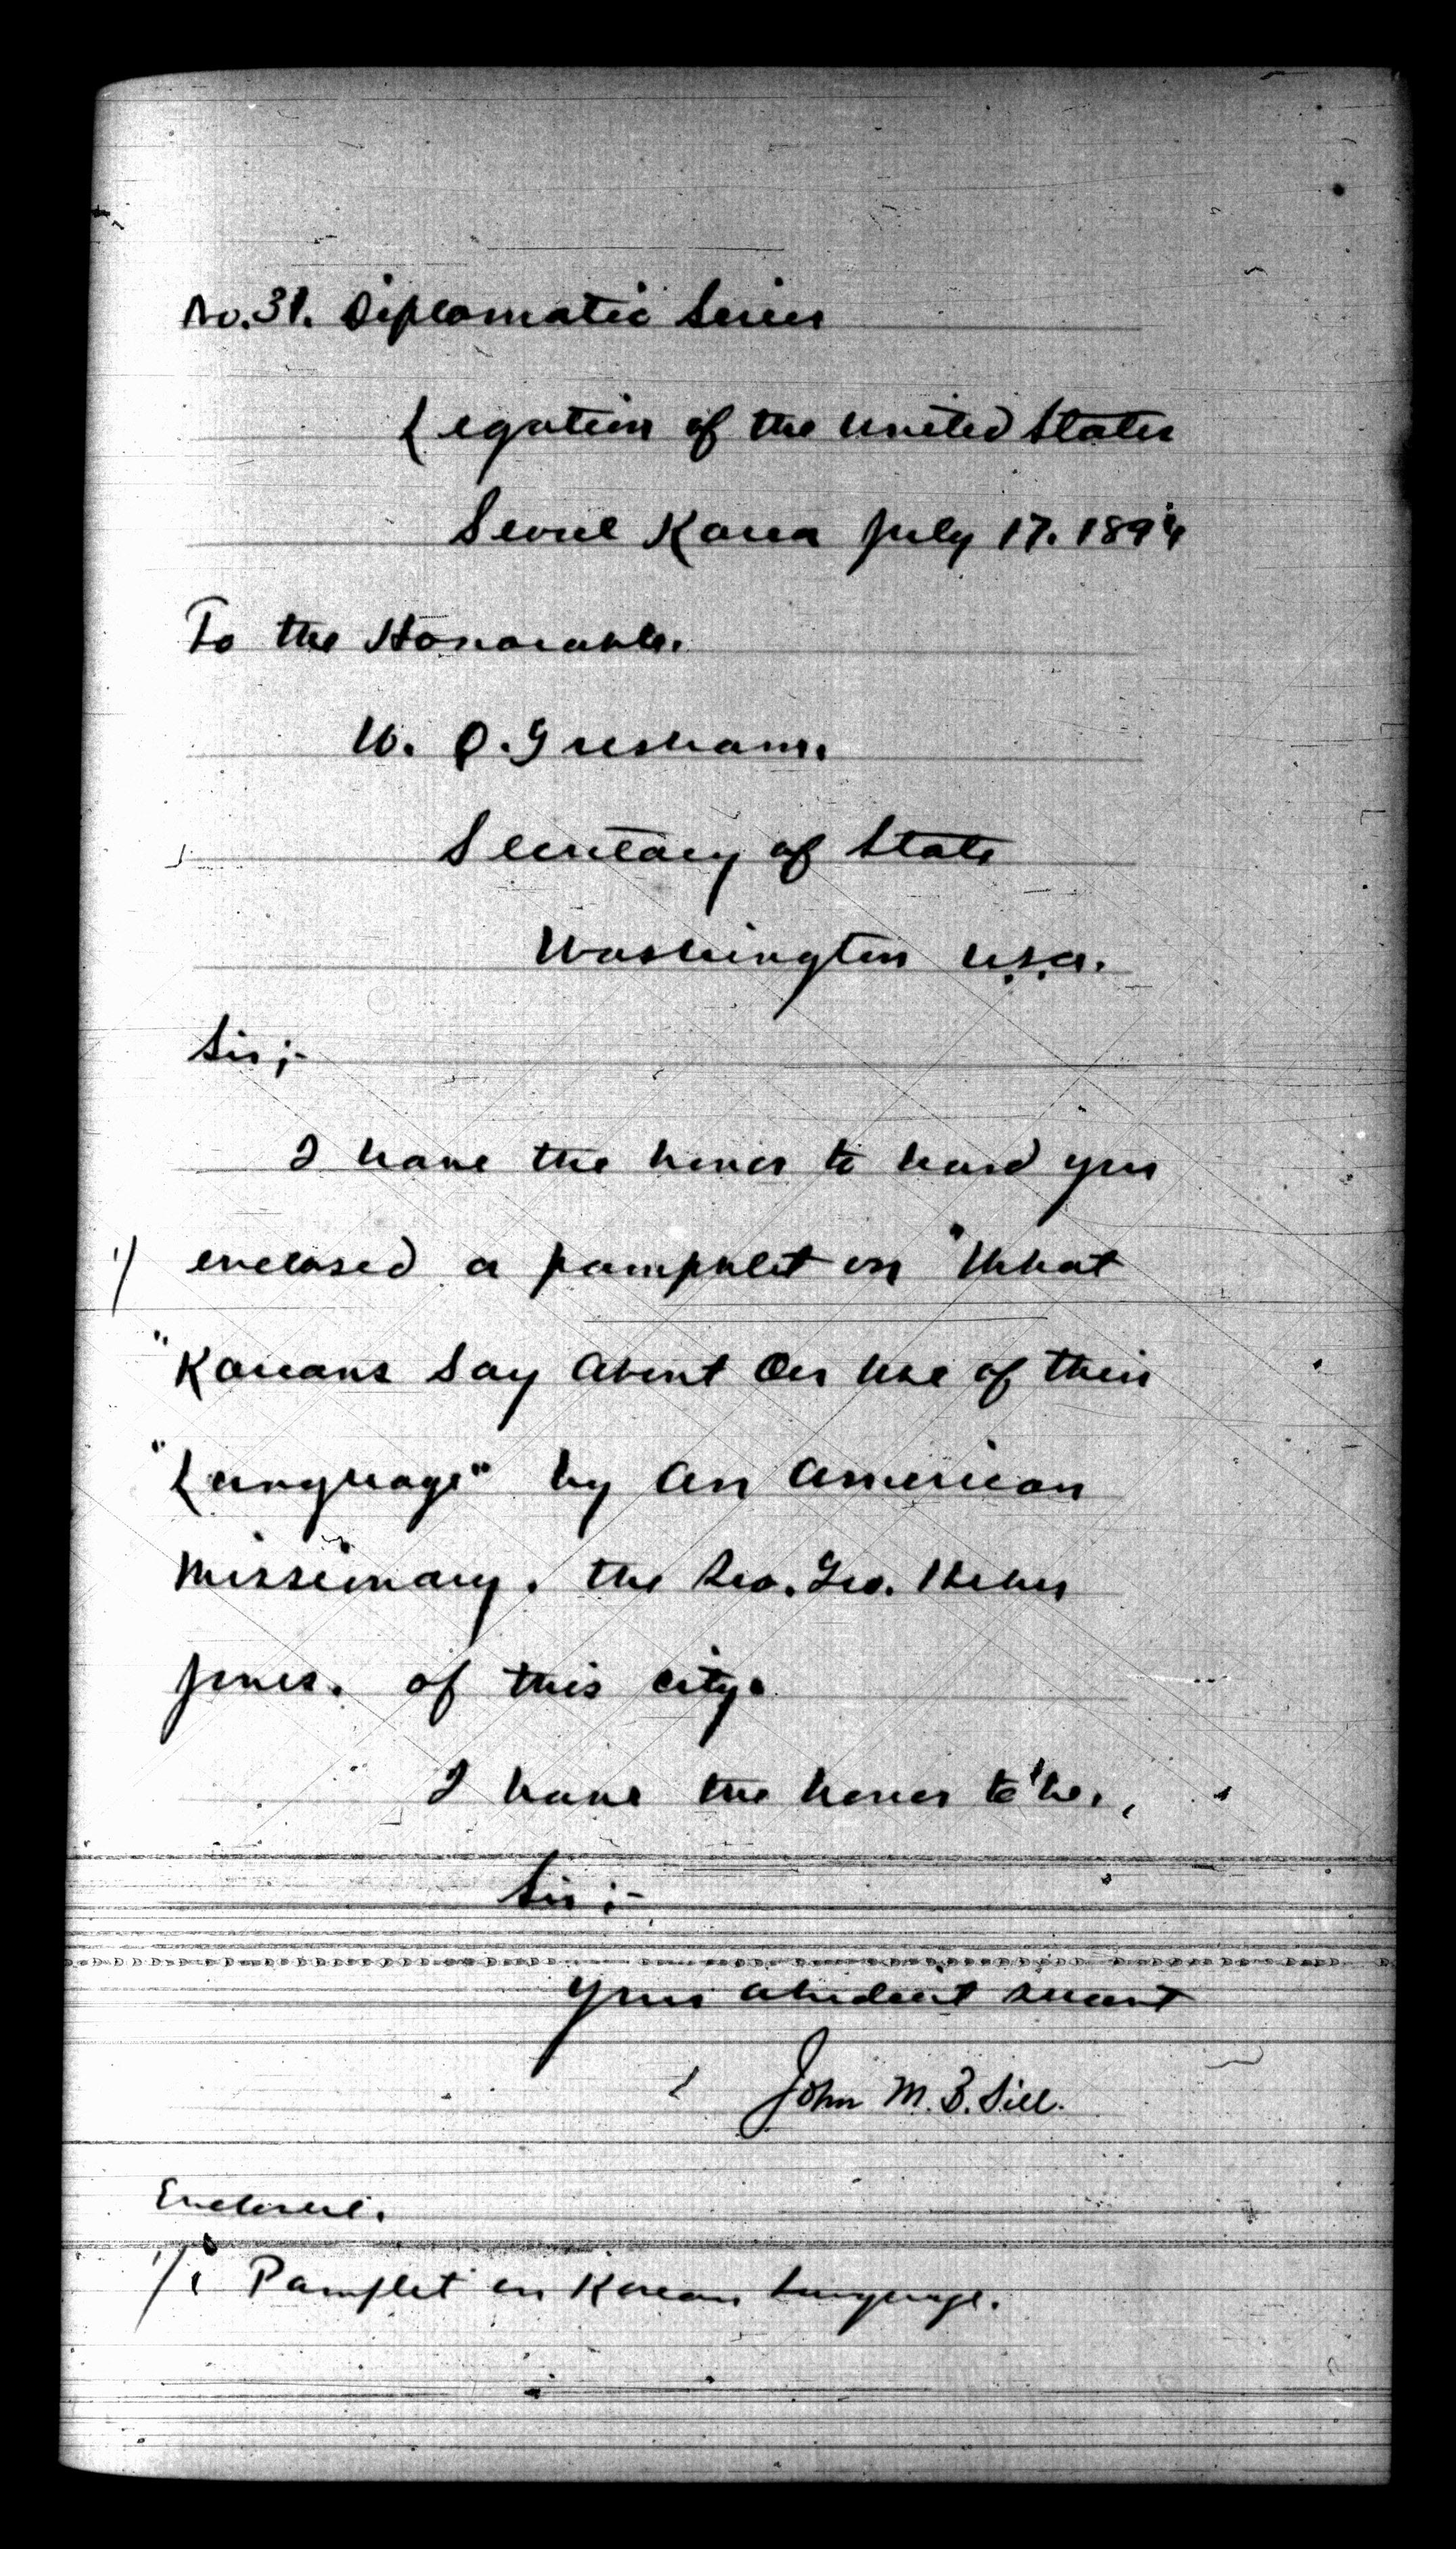 No. 31. Diplomatic Series
Legation of the United States
Seoul Korea July 17. 1894
To the Honorable.
W. Q. Gresham.
Secretary of State
Washington U.S.A.
Sir;-
I have the honor to hand you
1/ enclosed a pamphlet on "What
"Koreans Say About Our Use of their
"Language" by An American
Missionary. the Rev. Geo. Heber
Jones. of this city.
I have the honor to be,
Sir;-
Your obedient servant
John M. B. Sill.
Enclosure.
1/. Pamflet on Korean Language.